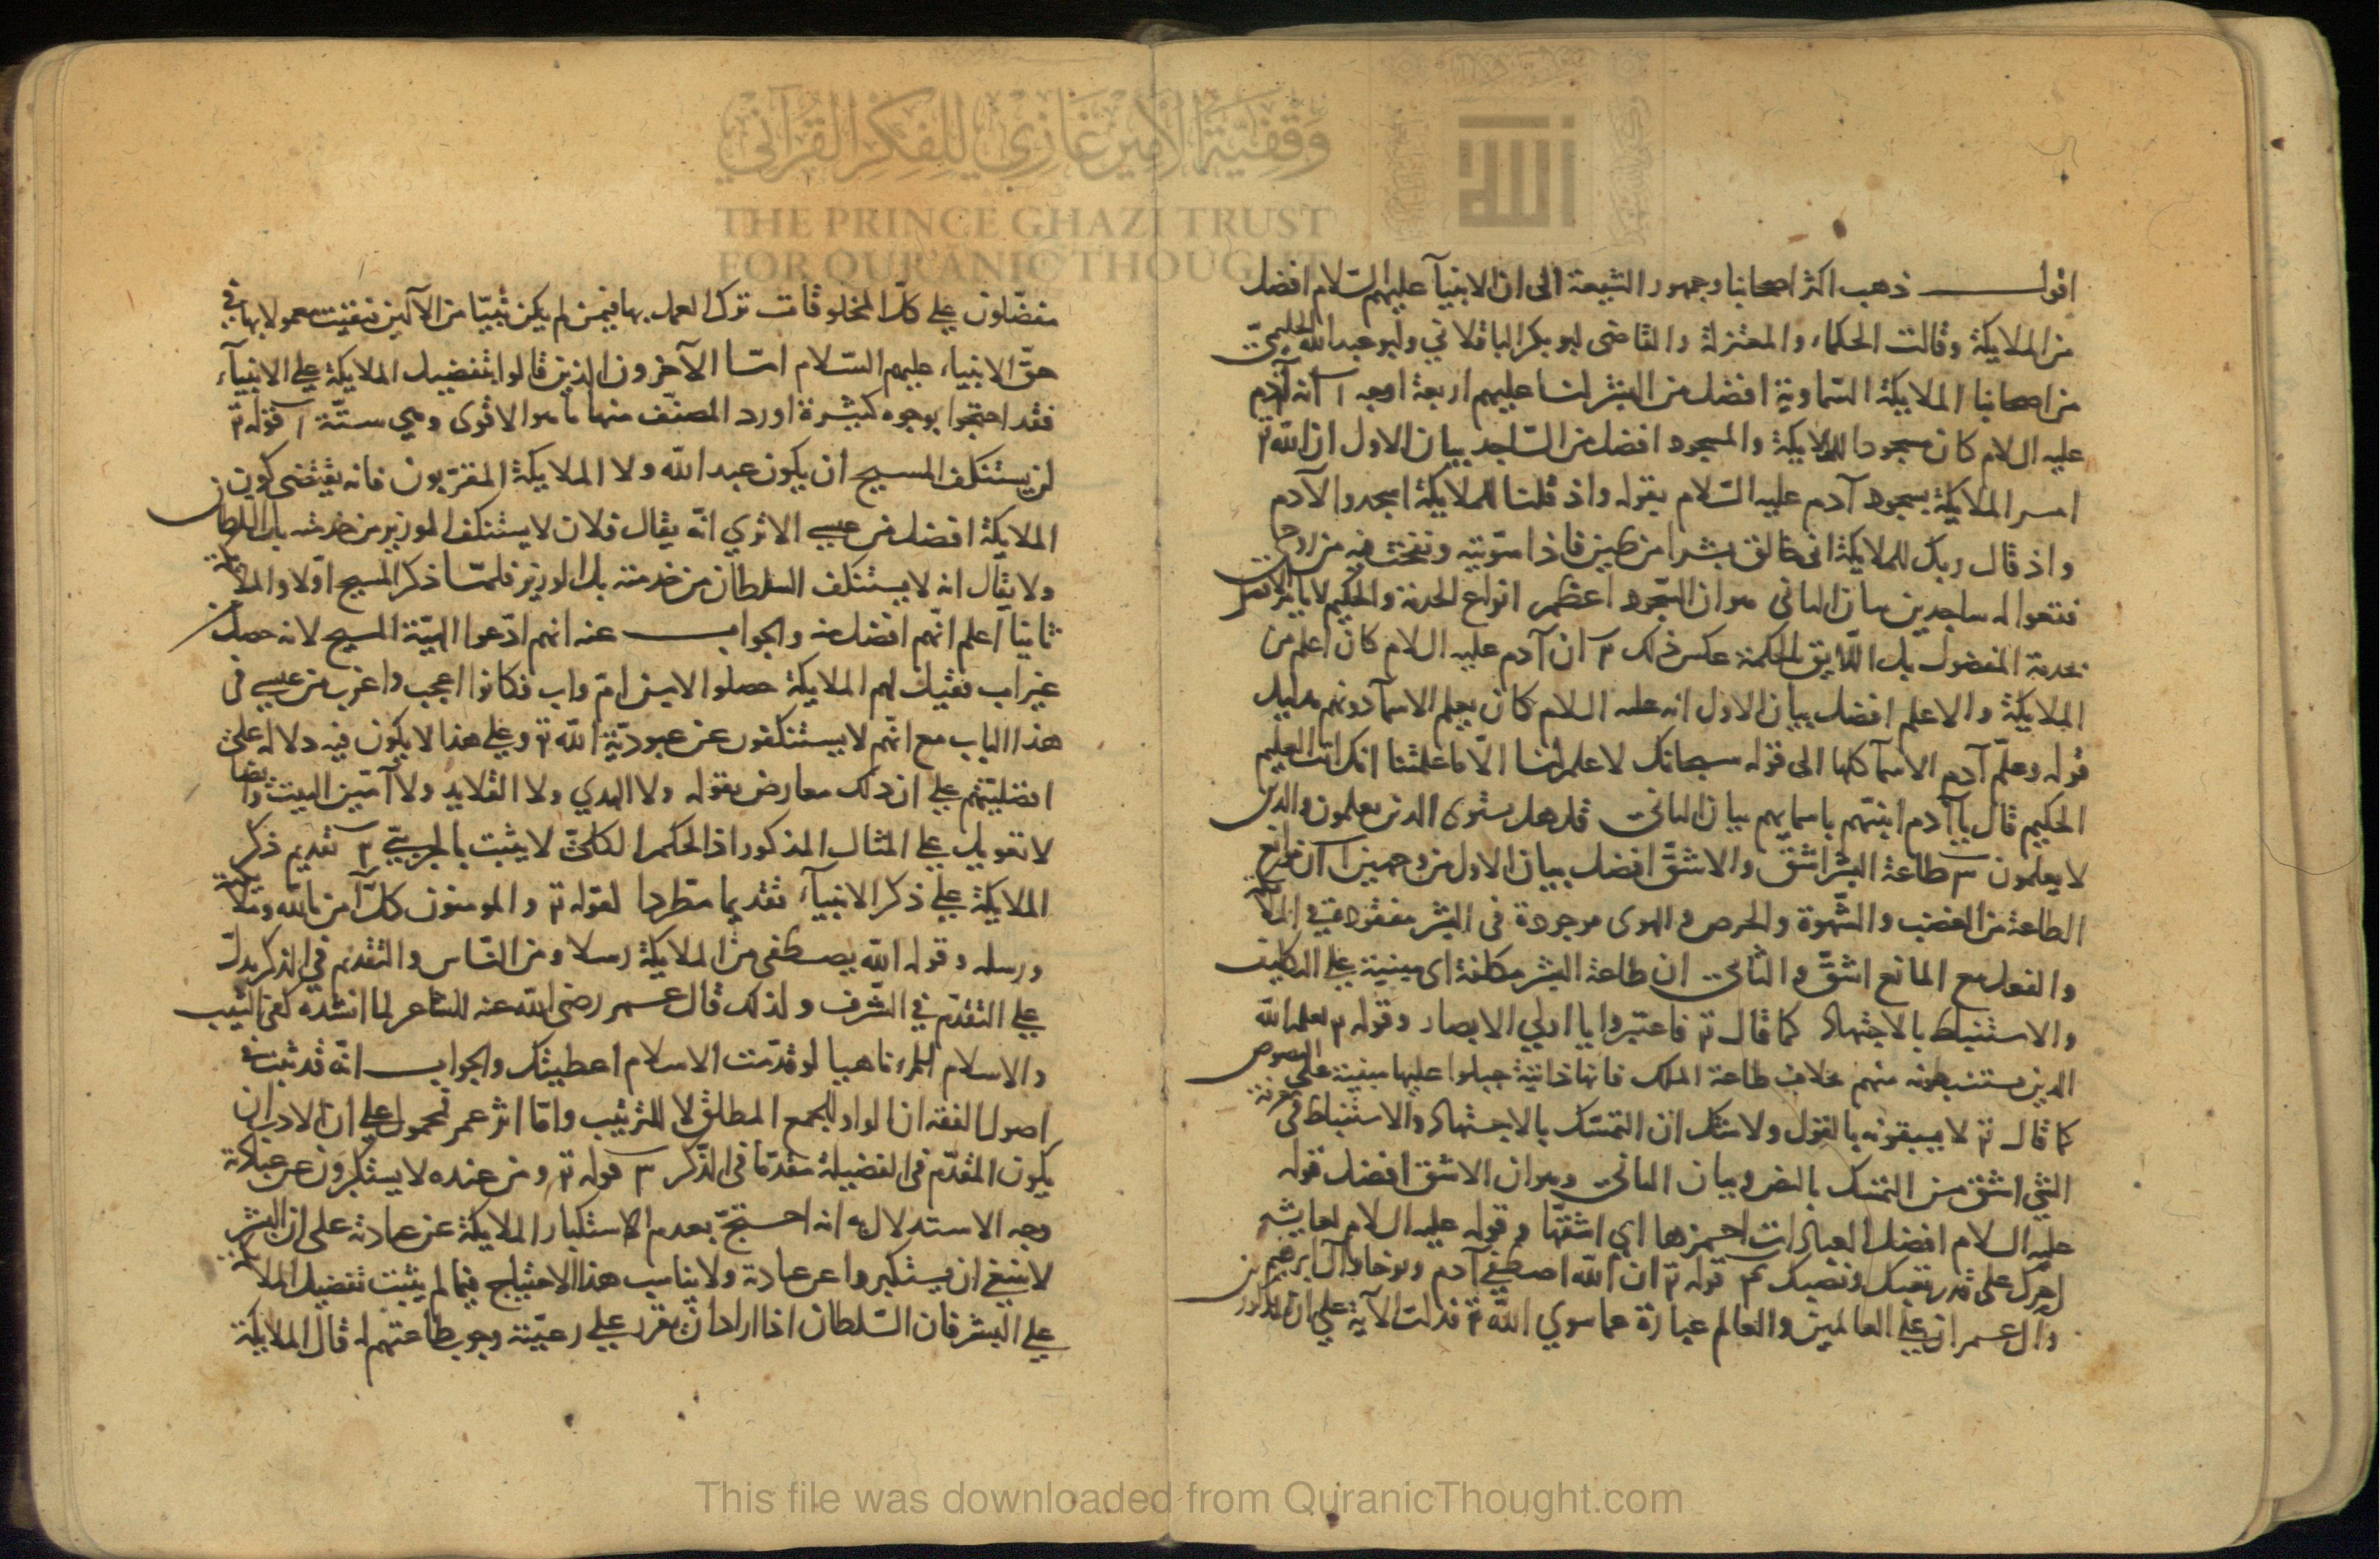 اقول ذهب اكثر اصحابنا وجمهور الشيعة الى ان الانبيآ عليهم السّلام افضل
من الملايكة وقالت الحكماء والمعتزلة والقاضى ابو بكر الباقلاني وابو عبد الله الحليميّ
من اصحابنا الملايكة السّماوية افضل من البشر لنا عليهم اربعة اوجه ا انه آدم
عليه اللام كان مسجودا للملايكة والمسجود افضل من السّاجد بيان الاول ان الله تع
امر الملايكة بسجود آدم عليه السّلام بقوله واذ قلنا للملايكة اسجدوا لآدم
واذ قال ربك للملايكة انى خالق بشرا من طين فاذا سوّيته ونفخت فيه من روحى
فقعوا له ساجدين بيان الثانى هو ان السّجود اعظم انواع الخدمة والحكيم لا يامر الافضل
بخدمة المفضول بل اللّايق بالحكمة عكس ذلك ٢ ان آدم عليه اللام كان اعلم من
الملايكة والاعلم افضل بيان الاول انه عليه السلام كان يعلم الاسمآ دونهم بدليل
قوله وعلّم آدم الاسمآ كلها الى قوله سبحانك لا علم لنا الّا ما علمتنا انك انت العليم
الحكيم قال يا آدم انبئهم باسمايهم بيان الثانى قل هل يستوى الذين يعلمون والذين
لا يعلمون ٣ طاعة البشر اشقّ والاشقّ افضل بيان الاول من وجهين ا ان موانع
الطاعة من الغضب والشّهوة والحرص والهوى موجودة فى البشر مفقودة فى الملآيكة
والفعل مع المانع اشقّ والثانى ان طاعة البشر مكلفة اى مبنية على التكليف
والاستنباط بالاجتهاد كما قال تع فاعتبروا يا اولي الابصار وقوله تع لعلمه الله
الذين يستنبطونه منهم بخلاف طاعة الملك فانها ذاتيّة جبلوا عليها مبنية على النصوص
كما قال تع لا يسبقونه بالقول ولا شك ان التمسّك بالاجتهاد والاستنباط فى معرفة
الشي اشق من التمسّك بالنص وبيان الثانى وهو ان الاشق افضل قوله
عليه السلام افضل العبادات احمزها اي اشقّها وقوله عليه اللام لعايشة
اجرك على قدر تعبك ونصبك ٤ قوله تع ان الله اصطفى آدم ونوحا وآل ابرهيم
وآل عمران على العالمين والعالم عبارة عما سوي الله تع فدلت الآية على ان المذكورين
مفضّلون على كلّ المخلوقات ترك العمل بها فيمن لم يكن نبيّا من الآلين فبقيت معمولا بها فى
حقّ الانبياء عليهم السّلام امّا الآخرون الذين قالوا بتفضيل الملايكة على الانبيآء
فقد احتجّوا بوجوه كثيرة اورد المصنّف منها ما هو الاقوى وهي ستّة ا قوله تع
لن يستنكف المسيح ان يكون عبد الله ولا الملايكة المقرّبون فانه يقتضى كون
الملايكة افضل من عيسى الا تري انّه يقال فلان لا يستنكف الوزير من خدمته بل السلطان
ولا يقال انه لا يستنكف السلطان من خدمته بل الوزير فلمّا ذكر المسيح اوّلا والملايكة
ثانيا اعلم انّهم افضل منه والجواب عنه انهم ادّعوا الهيّة المسيح لانه حصل
غير اب فقيل لهم الملايكة حصلوا لا من امّ واب فكانوا اعجب واغرب من عيسى فى
هذا الباب مع انّهم لا يستنكفون عن عبوديّة الله تع وعلى هذا لا يكون فيه دلالة على
افضليّتهم على ان ذلك معارض بقوله ولا الهدي ولا القلايد ولا آمّين البيت وايضا
لا تعويل على المثال المذكور اذ الحكم الكلىّ لا يثبت بالجزيّى ٢ تقديم ذكر
الملايكة على ذكر الانبيآء تقديما مطّردا لقوله تع والمومنون كلّ آمن بالله وملايكته
ورسله وقوله الله يصطفى من الملايكة رسلا ومن النّاس والتقديم في الذكر يدلّ
على التقدّم في الشّرف ولذلك قال عمر رضى الله عنه للشاعر لما انشده كفى الشّيب
والاسلام للمرء ناهيا لو قدّمت الاسلام اعطيتك والجواب انّه قد ثبت فى
اصول الفقه ان الواو للجمع المطلق لا للترتيب وامّا اثر عمر فمحمول على ان الادب ان
يكون المقدّم فى الفضيلة مقدّما فى الذّكر ٣ قوله تع ومن عنده لا يستكبرون عن عبادته
وجه الاستدلال به انه احتجّ بعدم استكبار الملايكة عن عبادته على ان البشر
لا ينبغى ان يستكبروا عن عبادته ولا يناسب هذا الاحتجاج فيما لم يثبت تفضيل الملايكة
على البشر فان السّلطان اذا اراد ان يقرر على رعيّته وجوب طاعتهم له قال الملايكة
وقفية الأمير غازي للفكر القرآني
THE PRINCE GHAZI TRUST
FOR QUR'ANIC THOUGHT
الله
This file was downloaded from QuranicThought.com